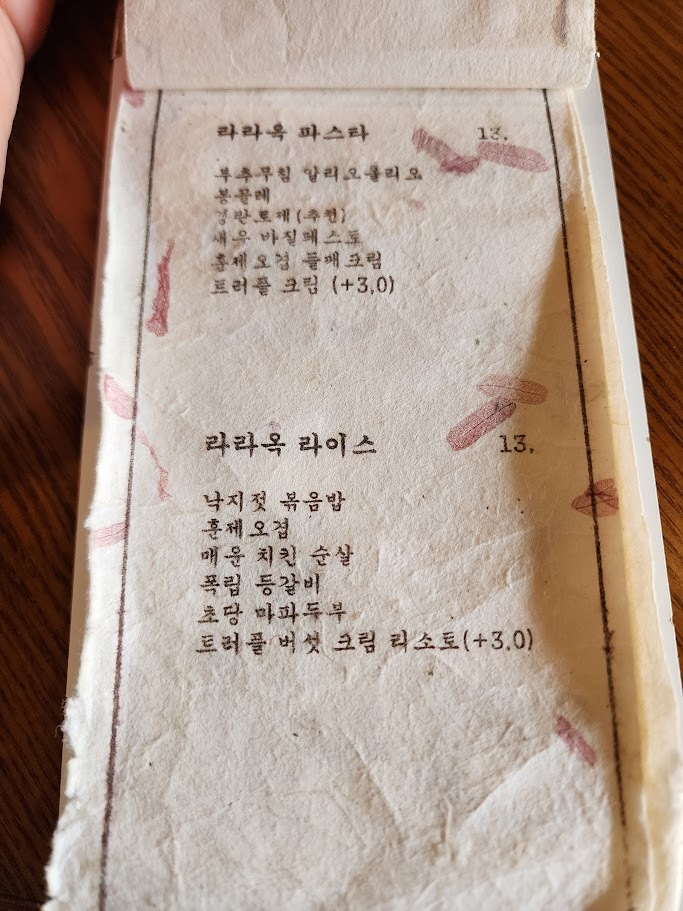 라라옥 파스타 13.
부추무침 알리오올리오
봉골레
명란로제(추천)
새우 바질페스토
훈제오겹 들깨크림
트러플 크림 (+3.0)
라라옥 라이스 13.
낙지젓 볶음밥
훈제오겹
매운 치킨 순살
폭립 등갈비
초당 마파두부
트러플 버섯 크림 리소토(+3.0)